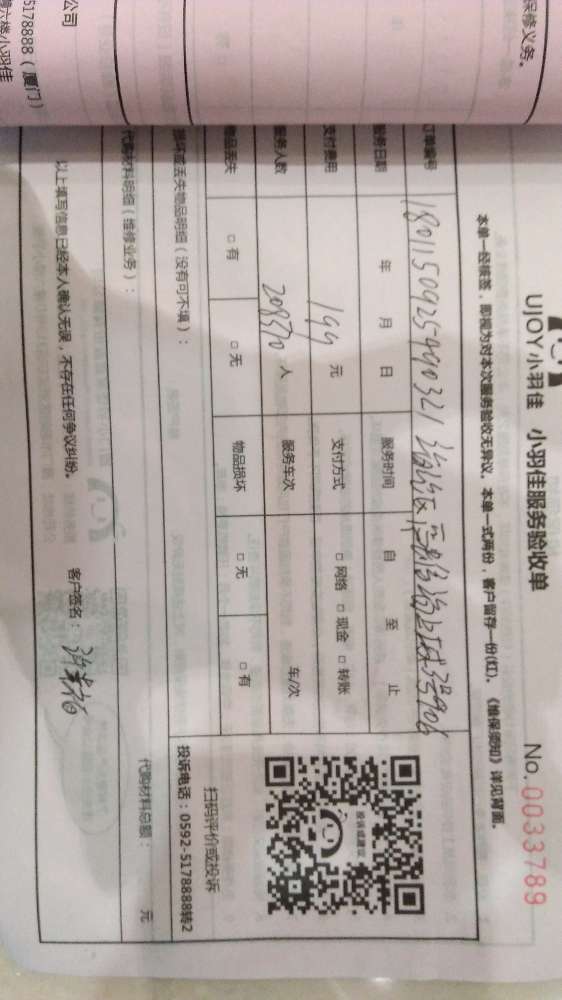 UJOY小羽佳 小羽佳服务验收单 No.0033789
本单一经接签，即视为对本次服务验收无异议。本单一式两份，客户留存一份(红)。《维保须知》详见背面。
订单编号 18011509259940321
服务日期 年 月 日 服务时间 自 至 止
支付费用 199 元 支付方式 □网络 □现金 □转账
服务人数 人 服务车次 车/次
物品丢失 □有 □无 物品损坏 □无 □有
损坏或丢失物品明细（没有可不填）：
代购材料明细（维修业务）： 代购材料总额： 元
以上填写信息已经本人确认无误，不存在任何争议纠纷。 客户签名：
投诉或建议
扫码评价或投诉
投诉电话：0592-5178888转2
保修义务。
公司
5178888（厦门）
楼六楼小羽佳